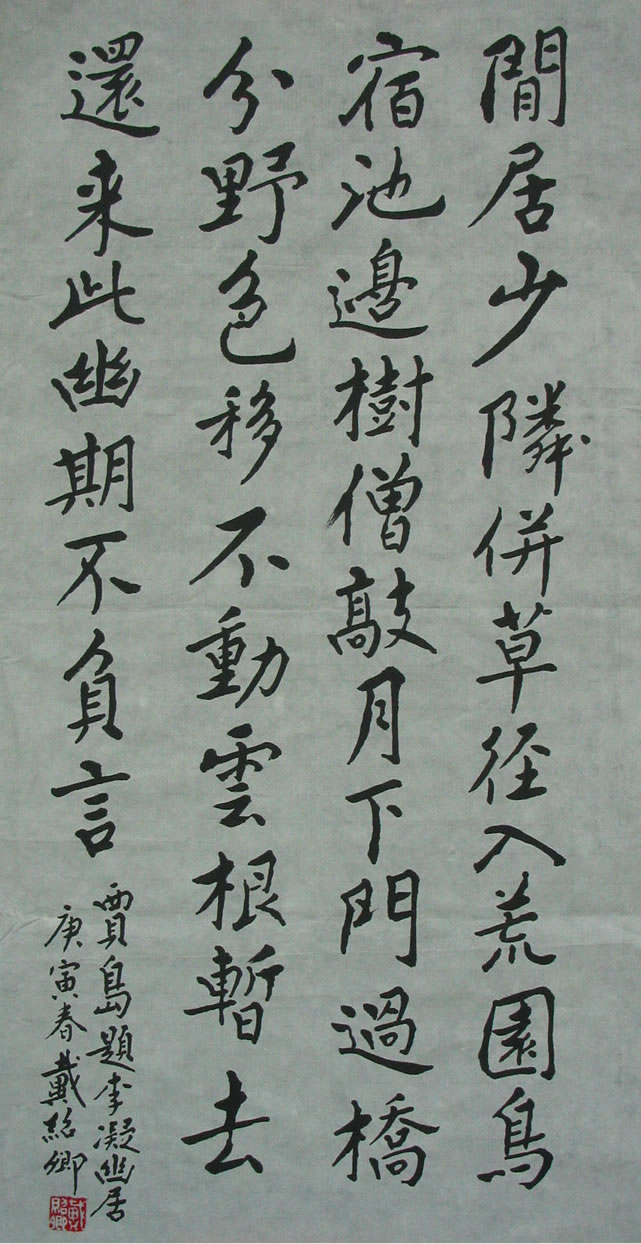 閒居少隣併草径入荒園鳥
宿池邊樹僧敲月下門過橋
分野色移不動雲根暫去
還来此幽期不負言
賈島題李凝幽居
庚寅春戴紹卿